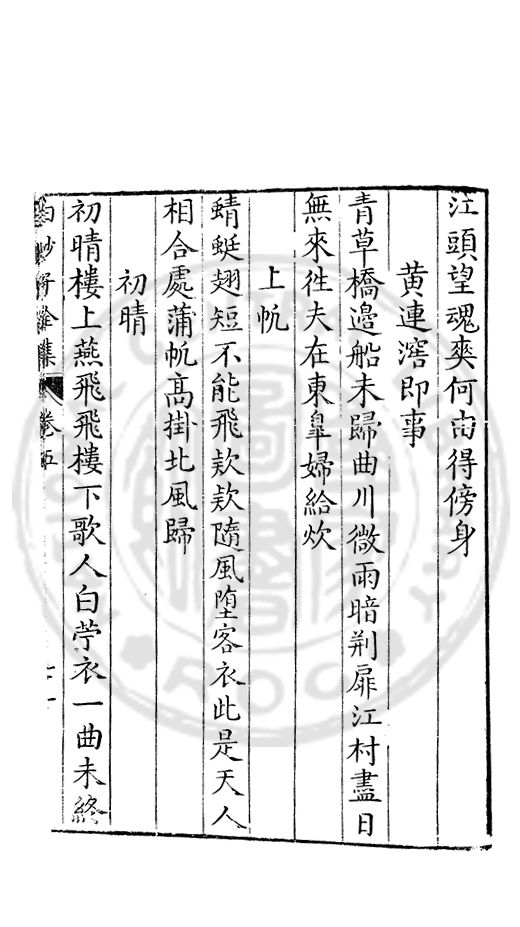 江頭望魂爽何由得傍身
黄連滘即事
青草橋邉船未歸曲川微雨暗荆扉江村盡日
無來徃夫在東臯婦給炊
上帆
蜻蜓翅短不能飛欵欵隨風堕客衣此是天人
相合處蒲帆髙掛北風歸
初晴
初晴樓上燕飛飛樓下歌人白苧衣一曲未終
白沙子全集 卷五